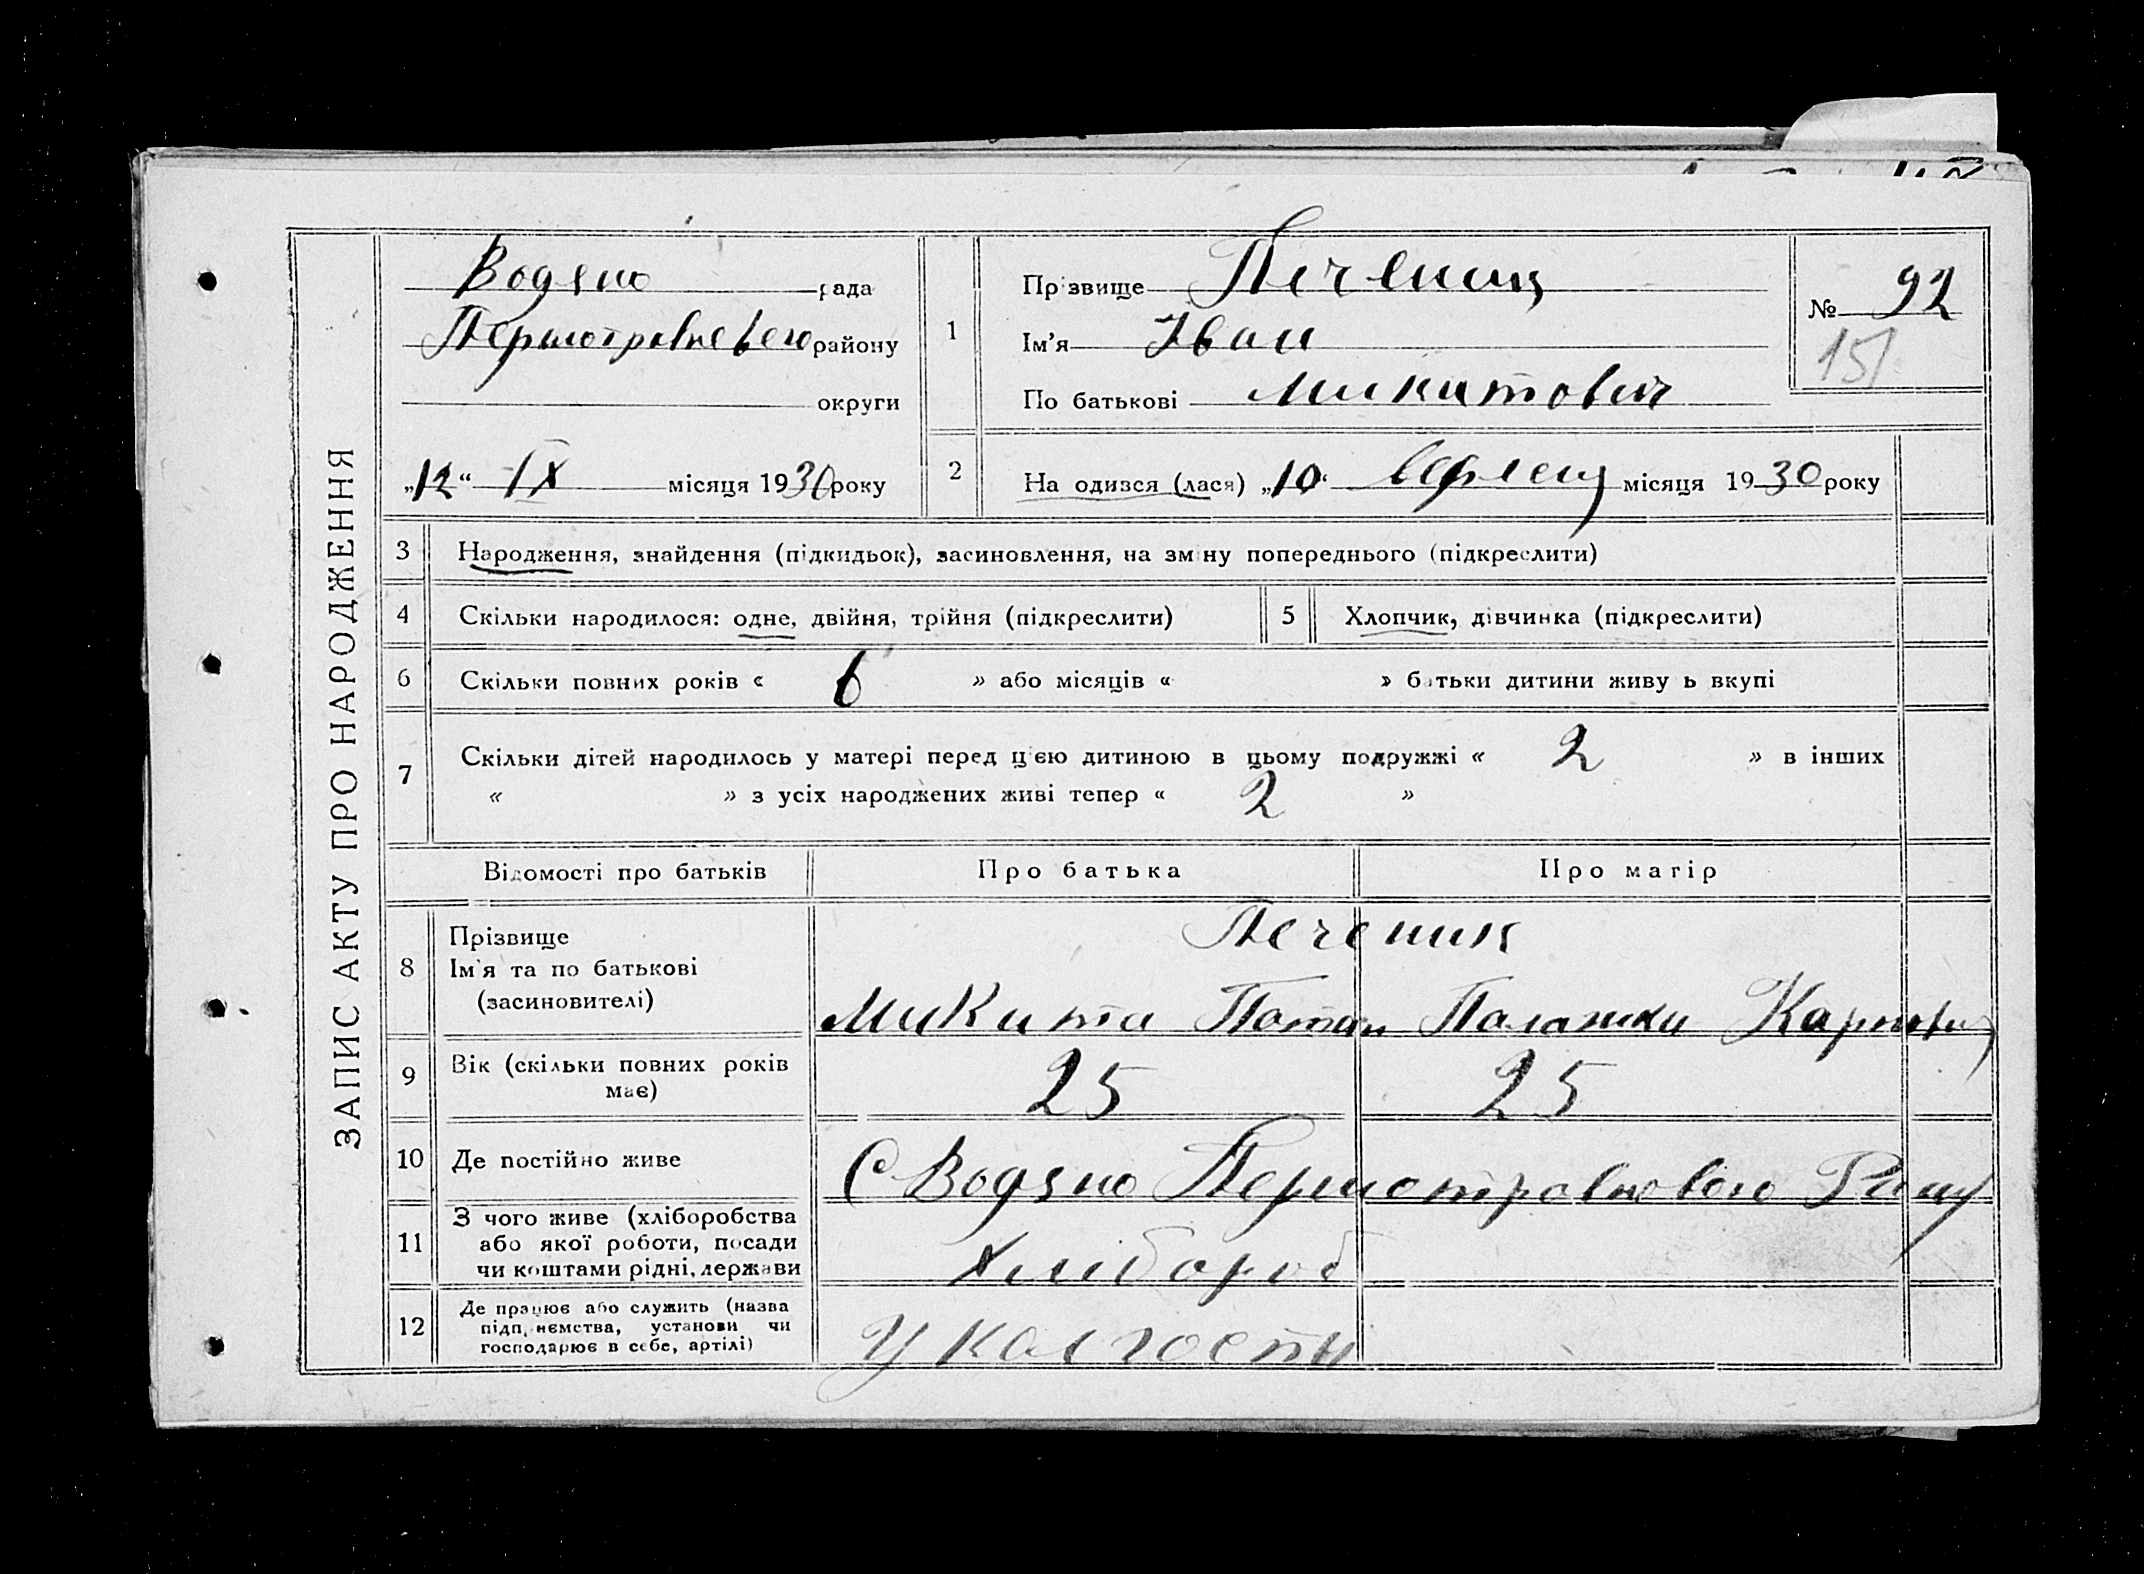 ЗАПИС АКТУ ПРО НАРОДЖЕННЯ
Водяно рада
Першотравневого району
округи
„12“ IX місяця 1930 року
1
Прізвище Печеник
Ім'я Іван
По батькові Микитович
№ 92
151
2
На одився (лася) „10“ вересня місяця 1930 року
3 Народження, знайдення (підкидьок), засиновлення, на зміну попереднього (підкреслити)
4 Скільки народилося: одне, двійня, трійня (підкреслити)
5 Хлопчик, дівчинка (підкреслити)
6 Скільки повних років « 6 » або місяців « » батьки дитини живу ь вкупі
7 Скільки дітей народилось у матері перед цією дитиною в цьому подружжі « 2 » в інших
« » з усіх народжених живі тепер « 2 »
Відомості про батьків Про батька Про матір
8 Прізвище
Ім'я та по батькові
(засиновителі)
Печеник
Микита Потап Палажка Карповна
9 Вік (скільки повних років
має)
25 25
10 Де постійно живе
С Водяно Першотравневого Рану
11 З чого живе (хліборобства
або якої роботи, посади
чи коштами рідні, держави
Хлібороб
12 Де працює або служить (назва
підприємства, установи чи
господарює в себе, артілі)
У колгоспи